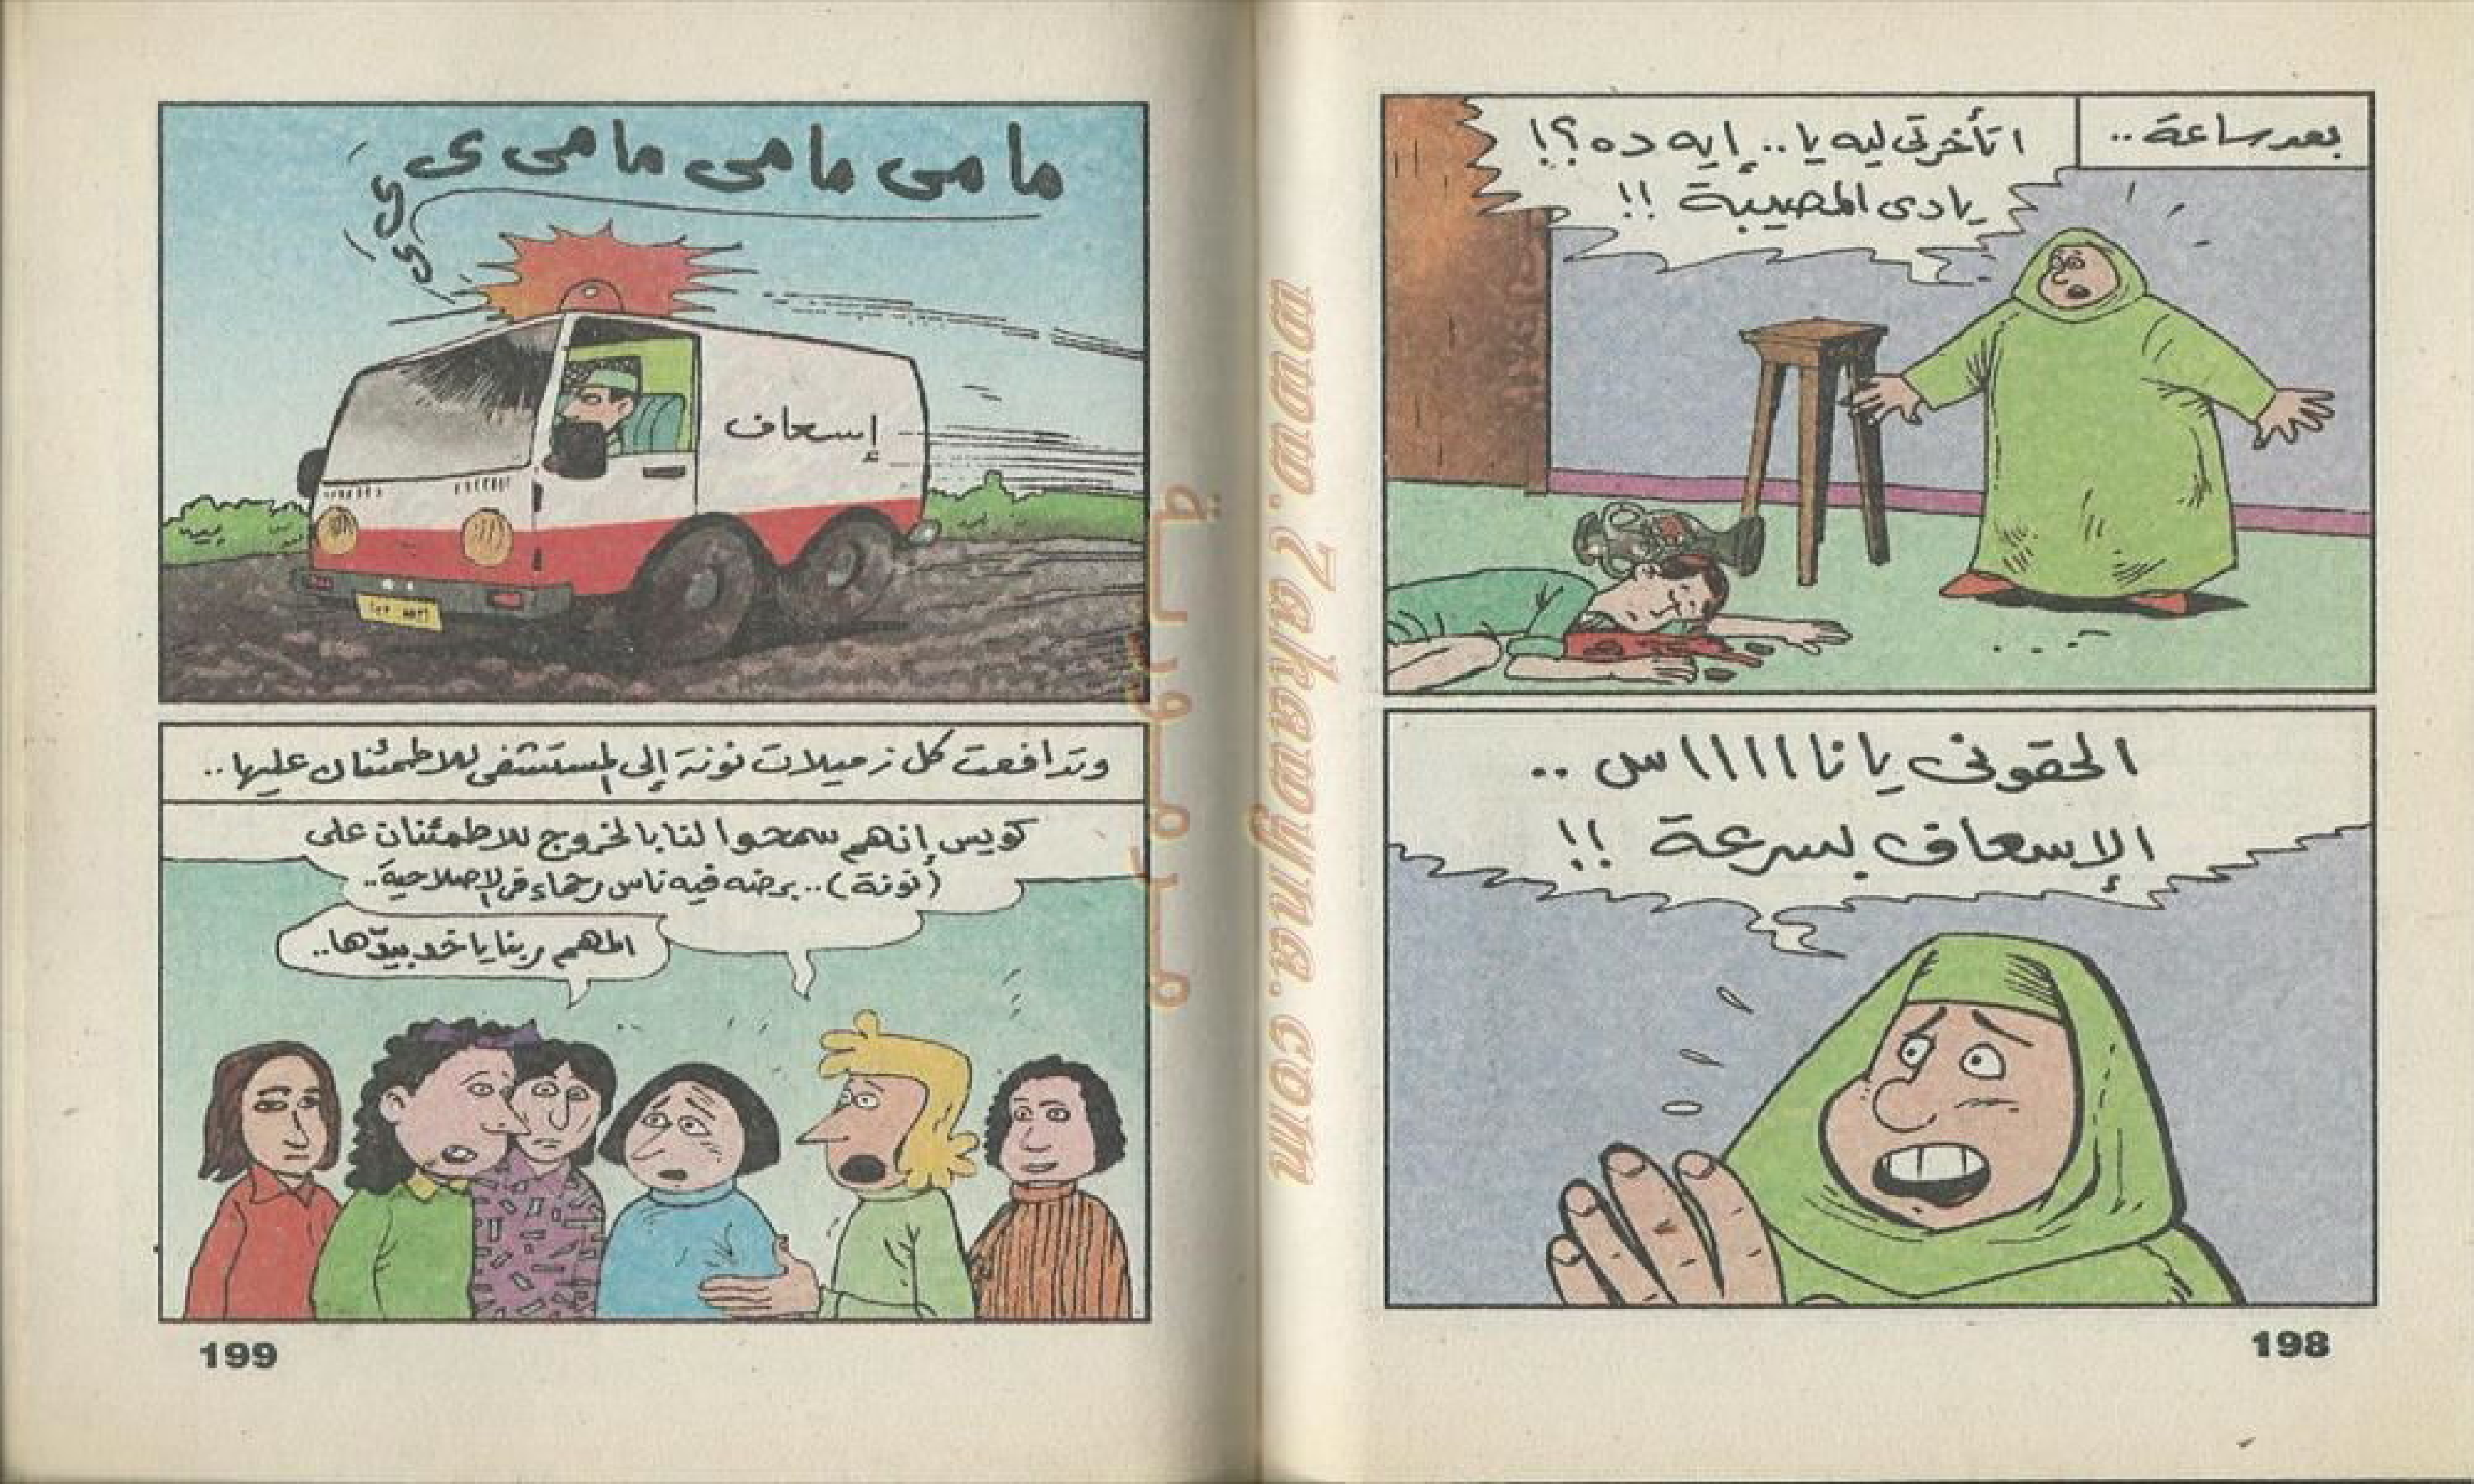 بعد ساعة ..
اتأخرتى ليه يا .. إيه ده ؟!
يادى المصيبة !!
الحقونى يا نااااااس ..
الإسعاف بسرعة !!
198
مامى مامى مامى ى
ى
ى
إسعاف
وتدافعت كل زميلات نونة إلى المستشفى للاطمئنان عليها ..
كويس إنهم سمحوا لنا بالخروج للاطمئنان على
(نونة) .. برضه فيه ناس رحماء فى الإصلاحية ..
المهم ربنا ياخد بيدّها ..
199
www.Zakawyna.com